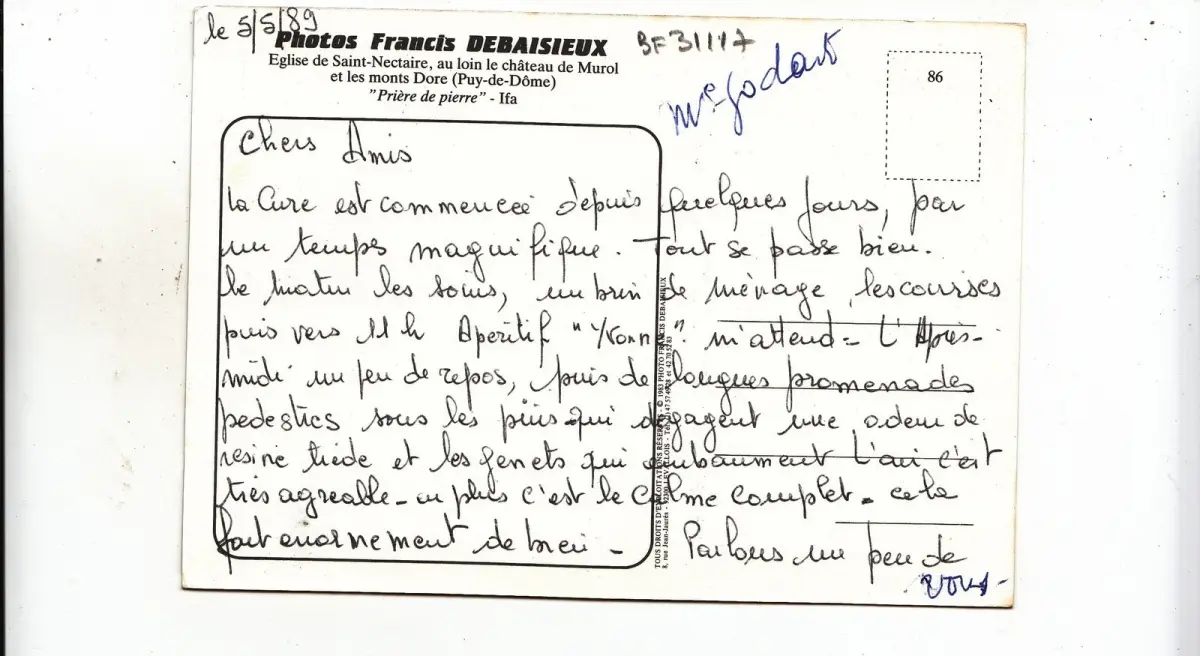 le 5/5/89
Photos Francis DEBAISIEUX
BF 31117
Eglise de Saint-Nectaire, au loin le château de Murol
et les monts Dore (Puy-de-Dôme)
"Prière de pierre" - Ifa
Me Godart
86
Chers Amis
La Cure est commencée depuis quelques jours, par
un temps magnifique. Tout se passe bien.
Le matin les soins, un brin de ménage, les courses
puis vers 11 h Aperitif "Yvonn" m'attend - L'Après-
midi un peu de repos, puis de longues promenades
pedestres sous les pins qui dégagent une odeur de
resine tiède et les genets qui embaument l'air c'est
très agreable - en plus c'est le calme complet - cela
fait enormement de bien - Parlons un peu de
vous -
TOUS DROITS D'EXPLOITATIONS RÉSERVÉS - © 1983 PHOTO FRANCIS DEBAISIEUX
8, rue Jean-Jaurès - 92300 LEVALLOIS